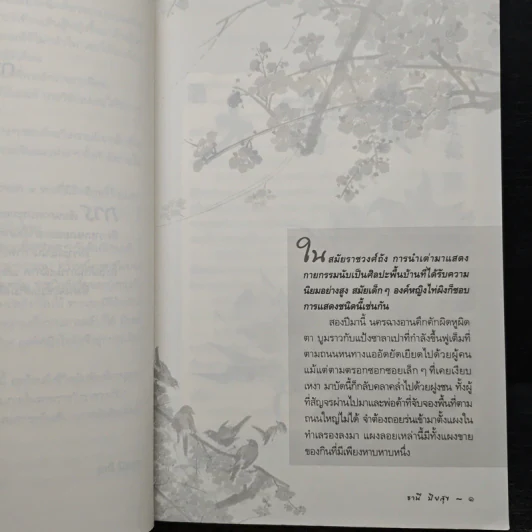 ใน สมัยราชวงศ์ถัง การนำเต่ามาแสดง
กายกรรมนับเป็นศิลปะพื้นบ้านที่ได้รับความ
นิยมอย่างสูง สมัยเด็ก ๆ องค์หญิงไท่ผิงก็ชอบ
การแสดงชนิดนี้เช่นกัน
สองปีมานี้ นครฉางอานคึกคักผิดหูผิด
ตา บูมราวกับแป้งซาลาเปาที่กำลังขึ้นฟูเต็มที่
ตามถนนหนทางแออัดยัดเยียดไปด้วยผู้คน
แม้แต่ตามตรอกซอกซอยเล็ก ๆ ที่เคยเงียบ
เหงา มาบัดนี้ก็กลับคลาคล่ำไปด้วยฝูงชน ทั้งผู้
ที่สัญจรผ่านไปมาและพ่อค้าที่จับจองพื้นที่ตาม
ถนนใหญ่ไม่ได้ จำต้องถอยร่นเข้ามาตั้งแผงใน
ทำเลรองลงมา แผงลอยเหล่านี้มีทั้งแผงขาย
ของกินที่มีเพียงหาบหาบหนึ่ง